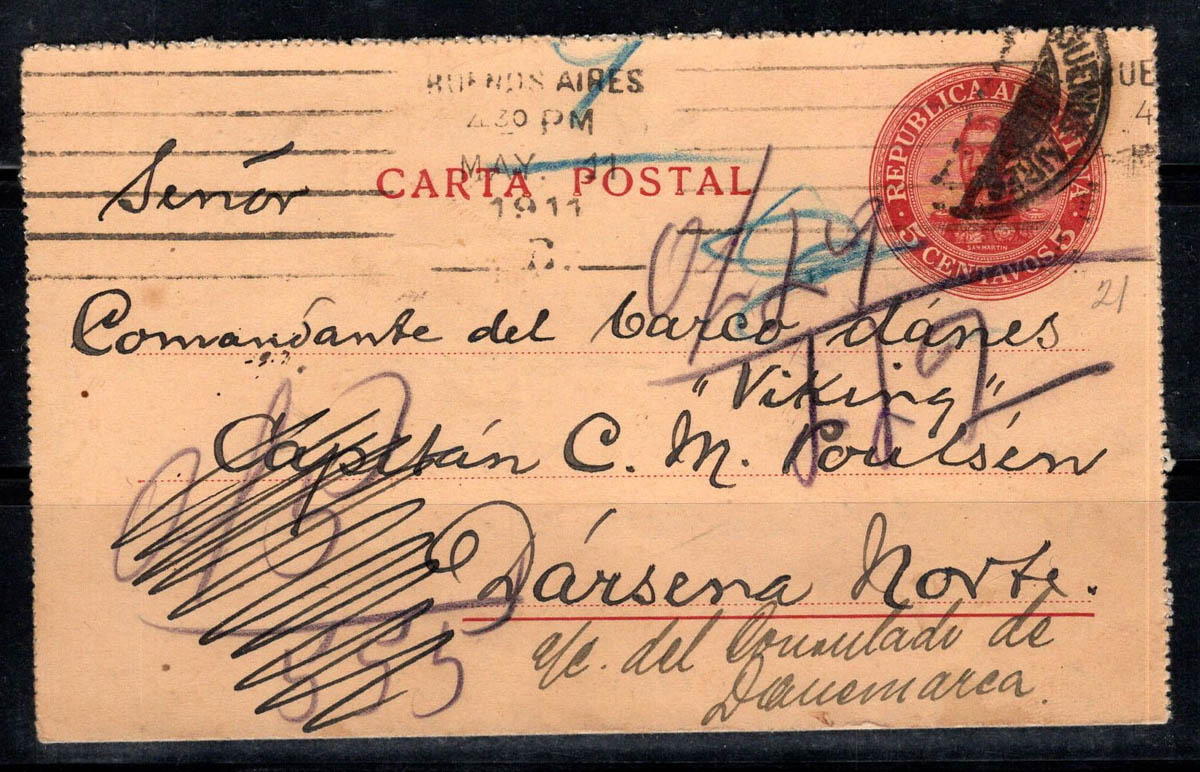 BUENOS AIRES
4 30 PM
MAY. 11
1911
REPUBLICA ARGENTINA
SAN MARTIN
5 CENTAVOS 5
BUENOS AIRES
CARTA POSTAL
Señór
21
Comandante del barco dánes
"Viking"
Capitán C. M. Poulsén
Dársena Norte.
c/c. del Consulado de
Danemarca.
555